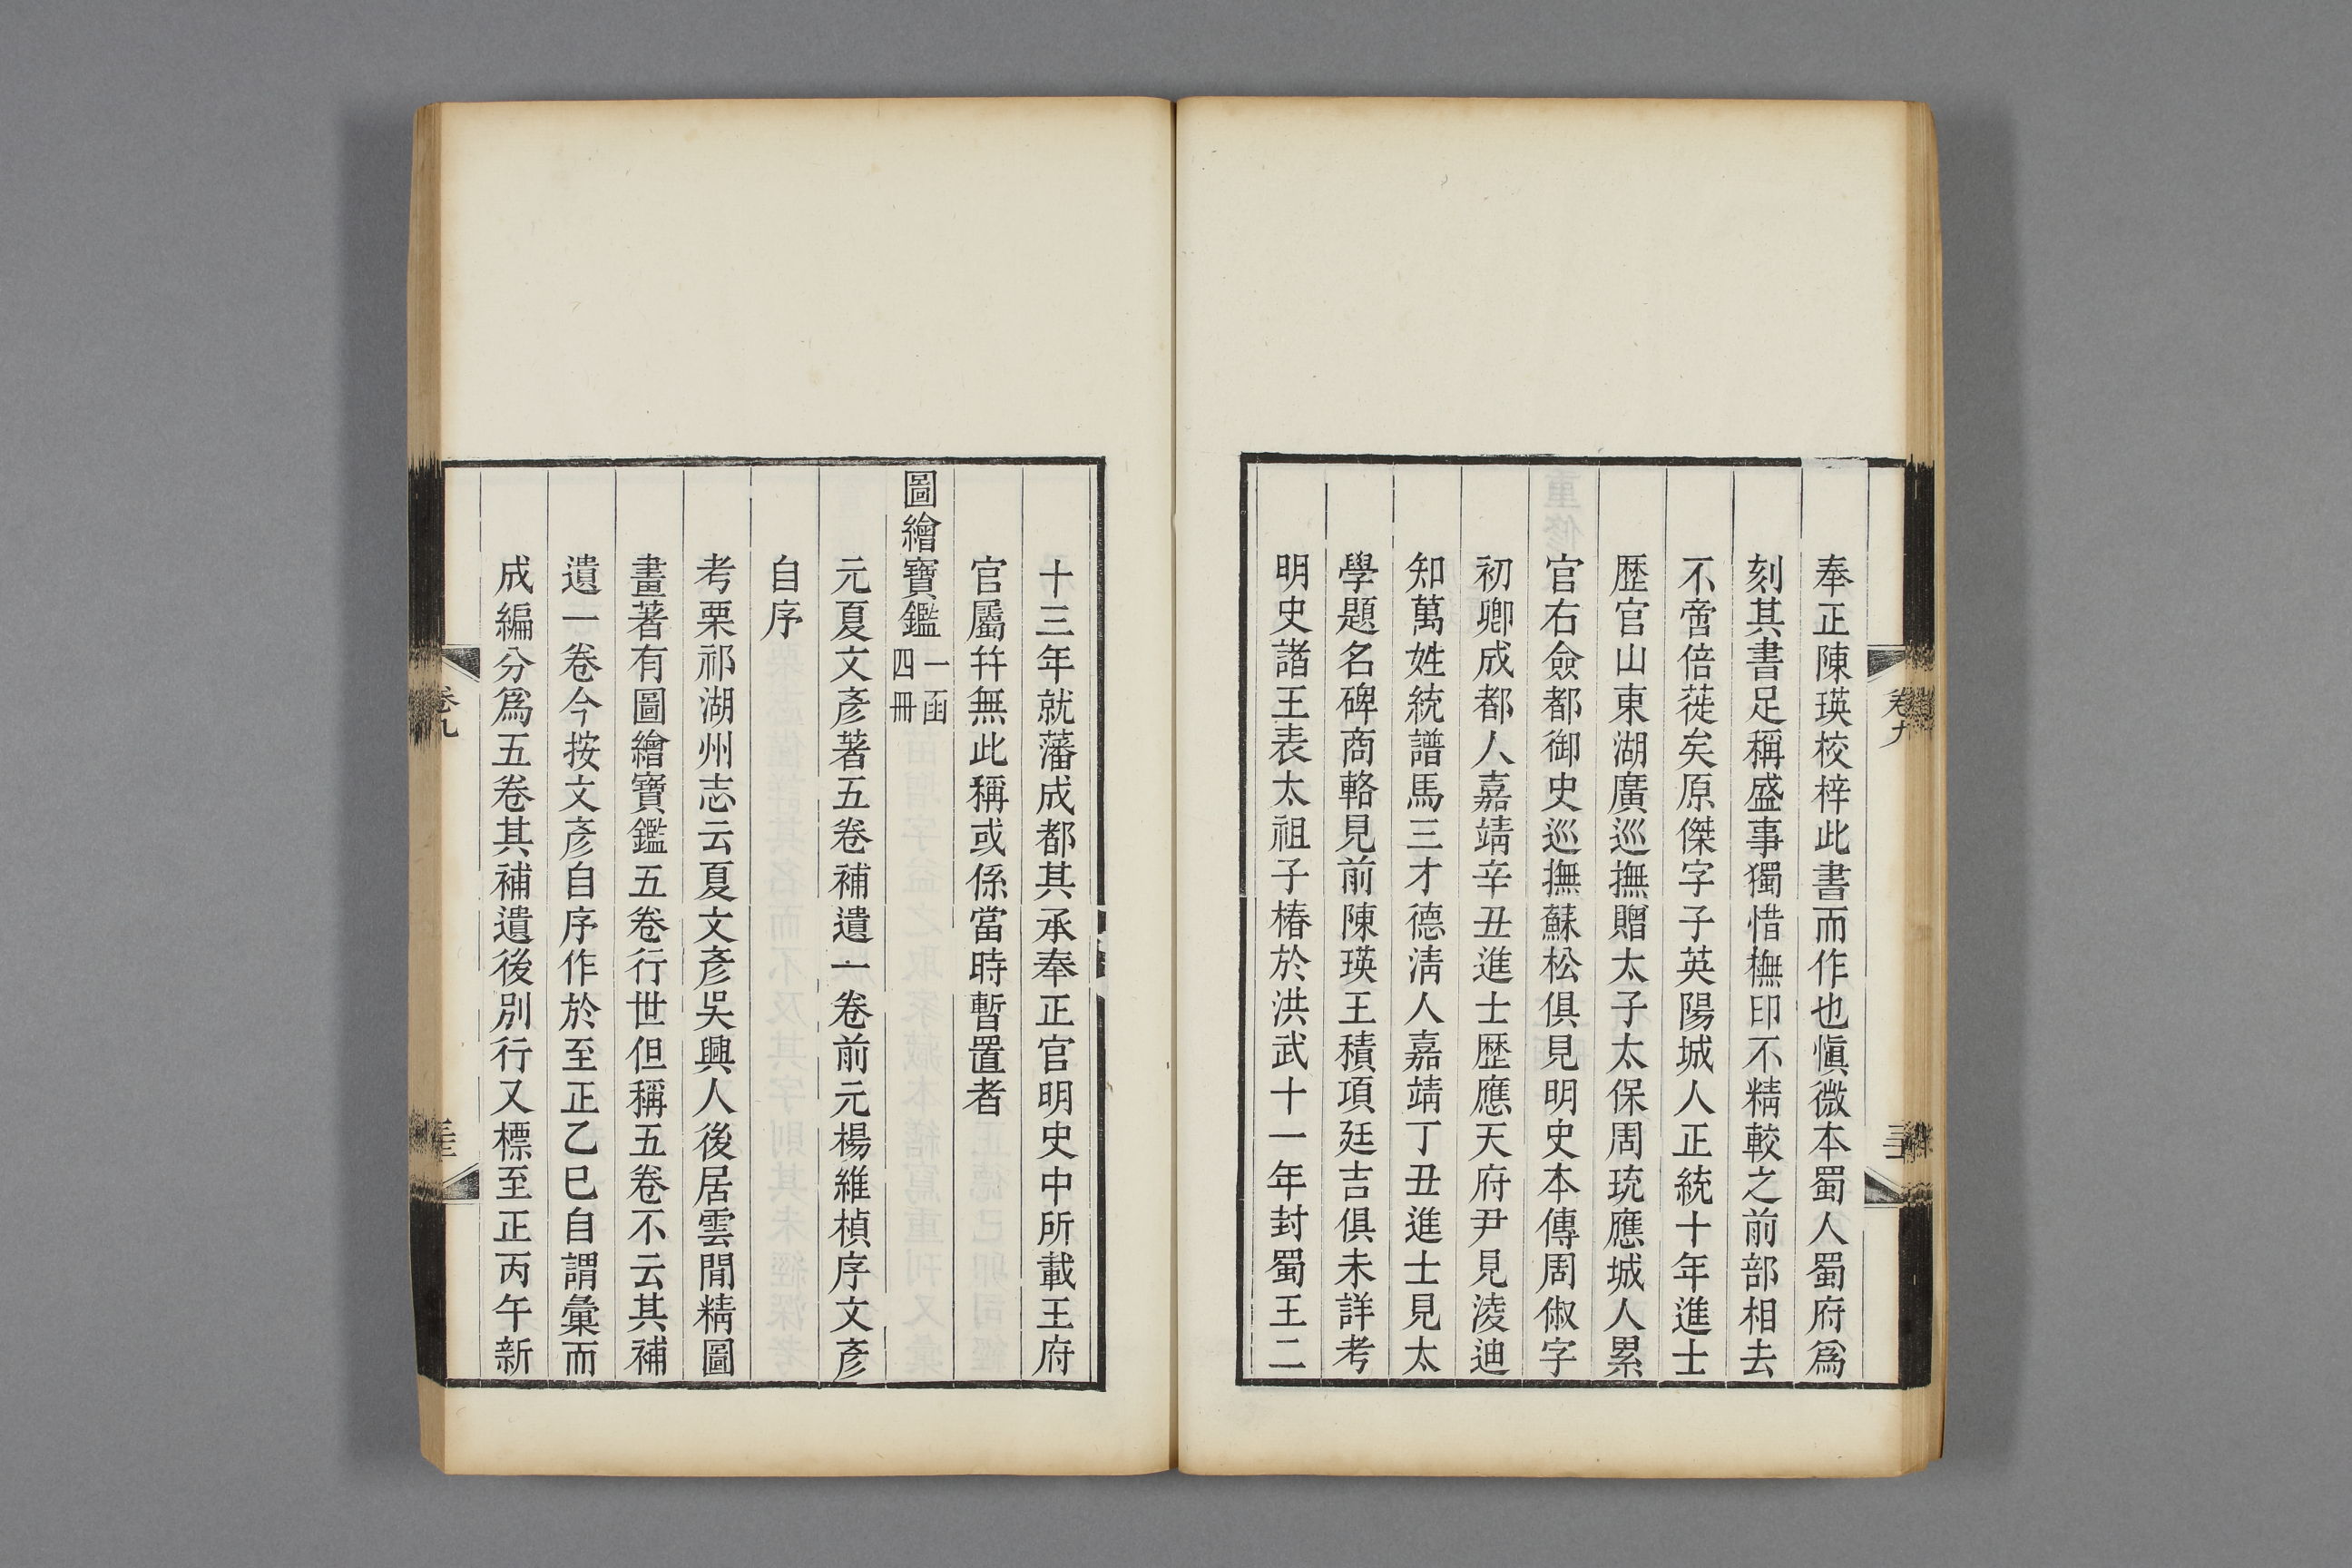 奉正陳瑛校梓此書而作也愼微本蜀人蜀府爲
刻其書足稱盛事獨惜橅印不精較之前部相去
不啻倍蓰矣原傑字子英陽城人正統十年進士
歷官山東湖廣巡撫贈太子太保周珫應城人累
官右僉都御史巡撫蘇松俱見明史本傳周俶字
初卿成都人嘉靖辛丑進士歷應天府尹見淩迪
知萬姓統譜馬三才德淸人嘉靖丁丑進士見太
學題名碑商輅見前陳瑛王積項廷吉俱未詳考
明史諸王表太祖子椿於洪武十一年封蜀王二
卷九
十三年就藩成都其承奉正官明史中所載王府
官屬幷無此稱或係當時暫置者
圖繪寶鑑一函四冊
元夏文彥著五卷補遺一卷前元楊維楨序文彥
自序
考栗祁湖州志云夏文彥吳興人後居雲閒精圖
畫著有圖繪寶鑑五卷行世但稱五卷不云其補
遺一卷今按文彥自序作於至正乙巳自謂彙而
成編分爲五卷其補遺後別行又標至正丙午新
卷九